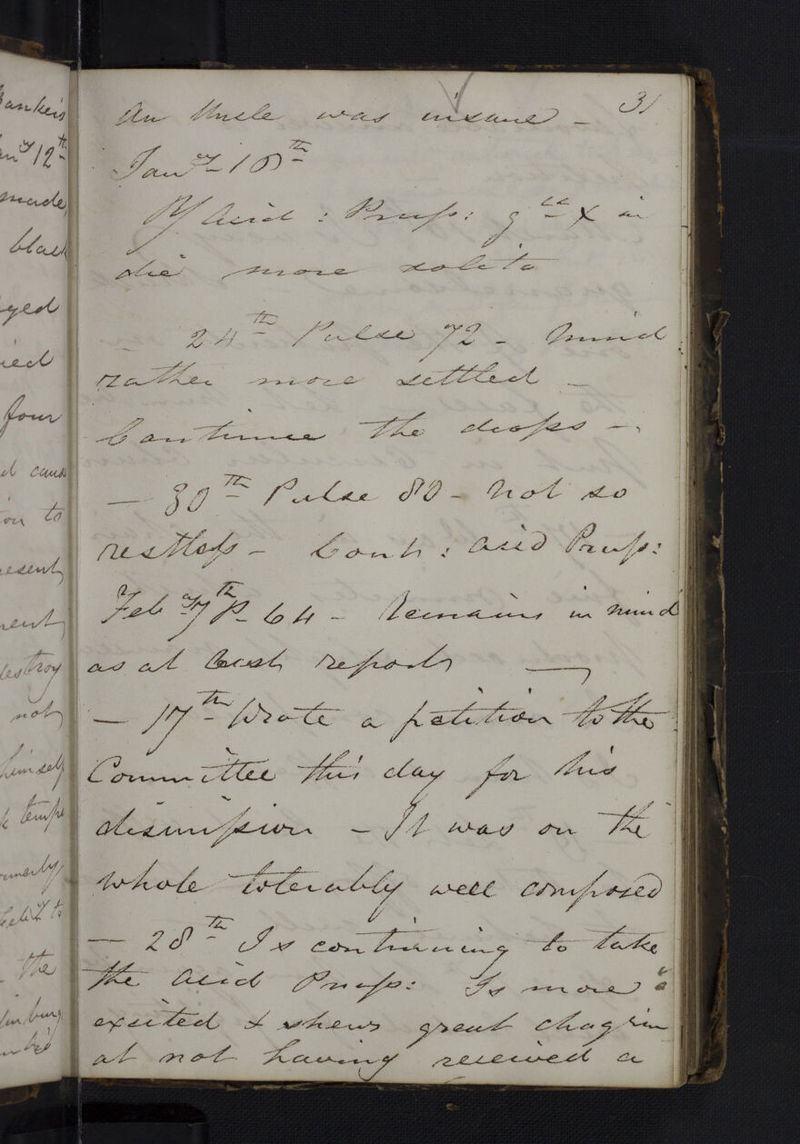 ankers
an^y 12^th
made
black
yed
ied
four
d caus
on to
resent
nent
estroy
not
himself
k temp
merly
the
31
An Uncle was insane –
Jan^y – 18^th
℞ Acid : Pruss: g^tt X in
die more solito
– 24^th Pulse 72 – Mind
rather more settled –
Continue the drops –
– 30^th Pulse 80 – Not so
restless – Cont : acid Pruss:
Feb^y 7^th P– 64 – Remains in mind
as at last report —
– 17^th Wrote a petition to the
Committee this day for his
dismission – It was on the
whole tolerably well composed
– 28^th Is continuing to take
the acid Pruss: Is more
excited & shews great chagrin
at not having received a